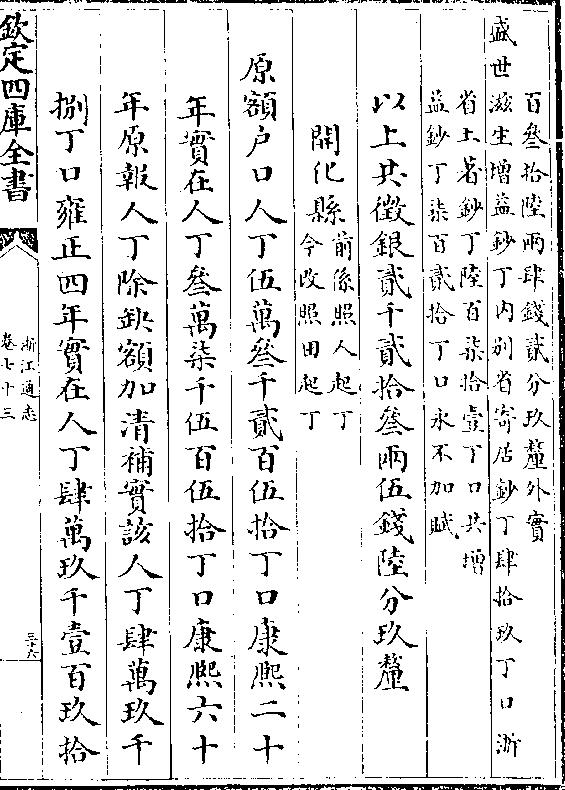 百叁拾陸兩肆錢貳分玖釐外實
盛世滋生增益鈔丁内别省寄居鈔丁肆拾玖丁口浙
省土著鈔丁陸百柒拾壹丁口共增
益鈔丁柒百貳拾丁口永不加賦
以上共徵銀貳千貳拾叁兩伍錢陸分玖釐
開化縣前係照人起丁
今改照田起丁
原額户口人丁伍萬叁千貳百伍拾丁口康熙二十
年實在人丁叁萬柒千伍百伍拾丁口康熙六十
年原報人丁除缺額加清補實該人丁肆萬玖千
捌丁口雍正四年實在人丁肆萬玖千壹百玖拾
欽定四庫全書
浙江通志
卷七十三
三六